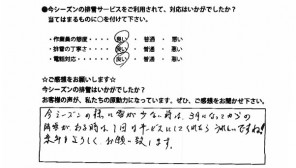 ●今シーズンの排雪サービスをご利用されて、対応はいかがでしたか？
当てはまるものに○を付けて下さい。
・作業員の態度・・・ 良い ・ 普通 ・ 悪い
・排雪の丁寧さ・・・ 良い ・ 普通 ・ 悪い
・電話対応・・・ 良い ・ 普通 ・ 悪い
☆ご感想をお願いします☆
今シーズンの排雪はいかがでしたか？
お客様の声が、私たちの原動力になっています。ぜひ、ご感想をお聞かせ下さい。
今シーズンの様に雪が少ない時は、3月になってからの
排雪がある時は、1回サービスにしてくれたら うれしいですね!!
来年もよろしく、お願い致します。